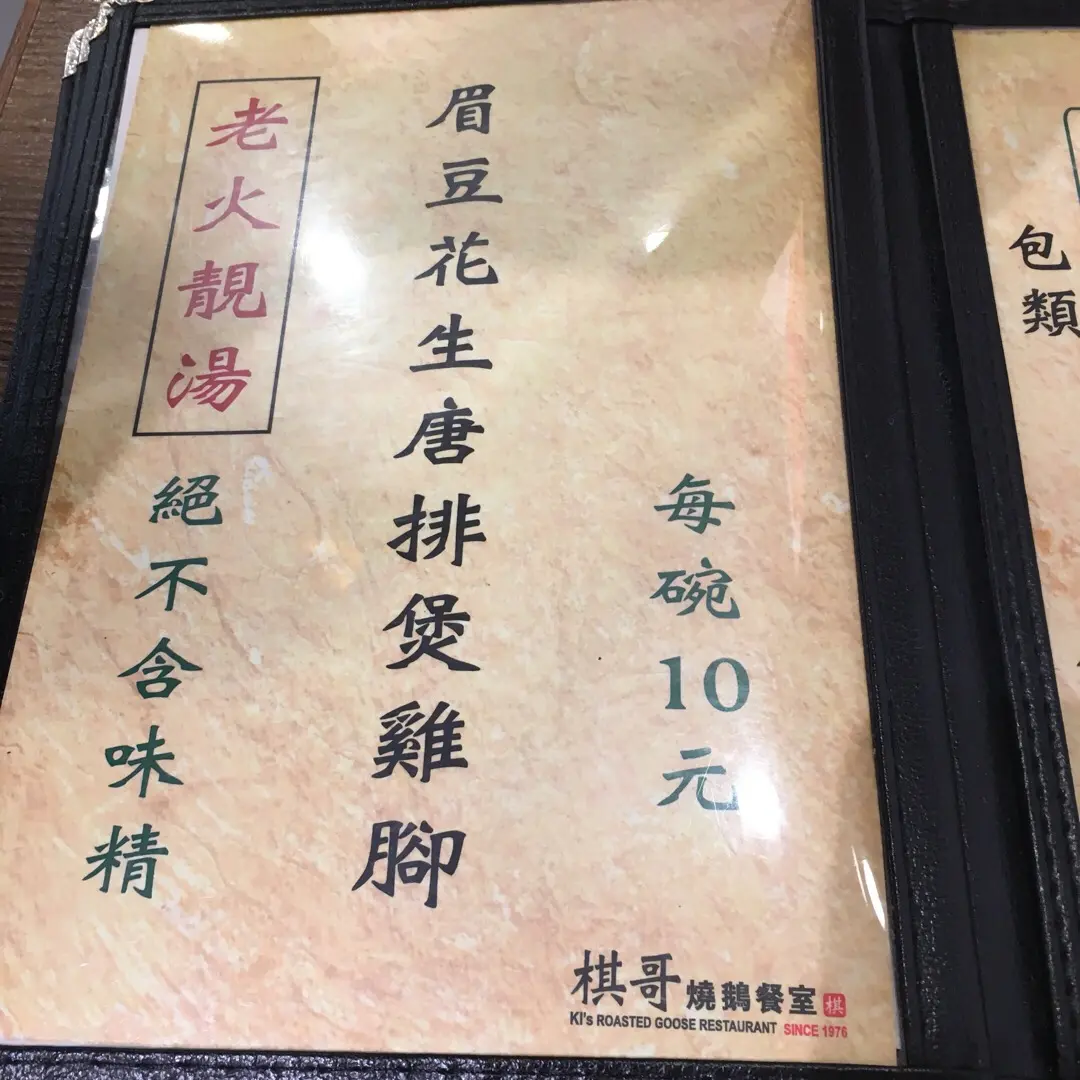 老火靚湯
絕不含味精
眉豆花生唐排煲雞腳
每碗10元
棋哥燒鵝餐室 棋
KI's ROASTED GOOSE RESTAURANT SINCE 1976
包
類